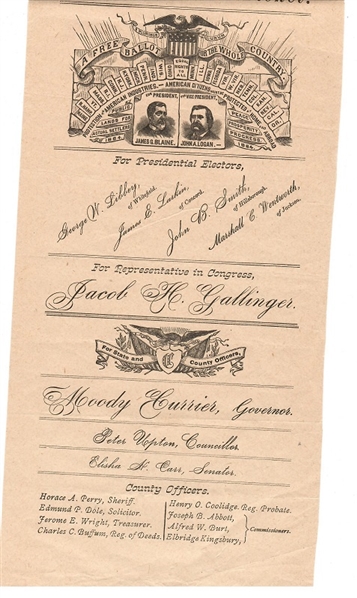 A FREE BALLOT IN THE WHOLE COUNTRY.
AMERICAN INDUSTRIES.— AMERICAN CITIZENS
PUBLIC LANDS FOR ACTUAL SETTLERS
1884
FOR PRESIDENT,
FOR VICE PRESIDENT,
PEACE
PROSPERITY
PROGRESS
JAMES G. BLAINE.
JOHN A. LOGAN.
For Presidential Electors,
George W. Libbey, of Whitefield.
James E. Larkin, of Concord.
John B. Smith, of Hillsborough.
Marshall C. Wentworth, of Jackson.
For Representative in Congress,
Jacob H. Gallinger.
For State and County Officers,
Moody Currier, Governor.
Peter Upton, Councillor.
Elisha F. Carr, Senator.
County Officers.
Horace A. Perry, Sheriff.
Edmund P. Dole, Solicitor.
Jerome E. Wright, Treasurer.
Charles C. Buffum, Reg. of Deeds.
Henry O. Coolidge. Reg. Probate.
Joseph B. Abbott,
Alfred W. Burt,
Elbridge Kingsbury,
Commissioners.